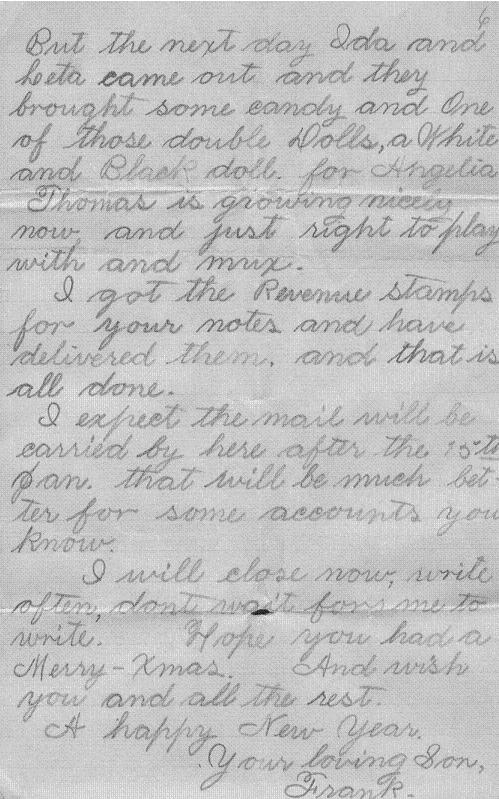 6
But the next day Ida and
Leeta came out and they
brought some candy and One
of those double Dolls, a White
and Black doll. for Angelia
Thomas is growing nicely
now and just right to play
with and mux.
I got the Revenue stamps
for your notes and have
delivered them. and that is
all done.
I expect the mail will be
carried by here after the 15th
Jan. that will be much bet-
ter for some accounts you
know.
I will close now, write
often, dont wait for me to
write. Hope you had a
Merry-Xmas. And wish
you and all the rest.
A happy New Year.
Your loving Son,
Frank.